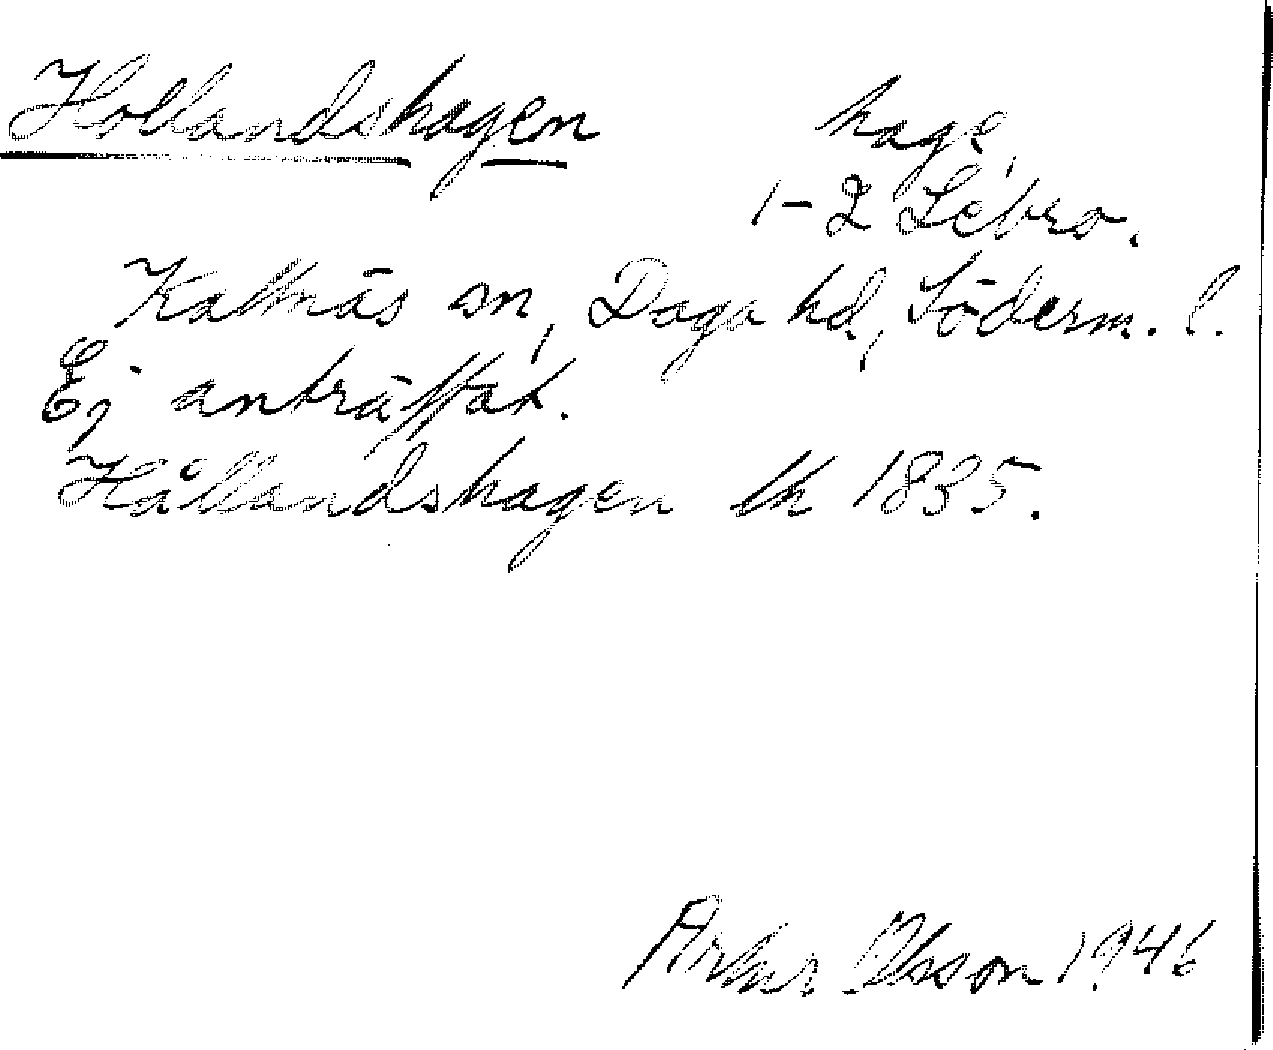 Hollandshagen hage,
1-2 Lébro.
Kattnäs sn, Daga hd, Söderm. l.
Ej anträffat.
Hållandshagen lk 1835.
Artur Olsson 1946